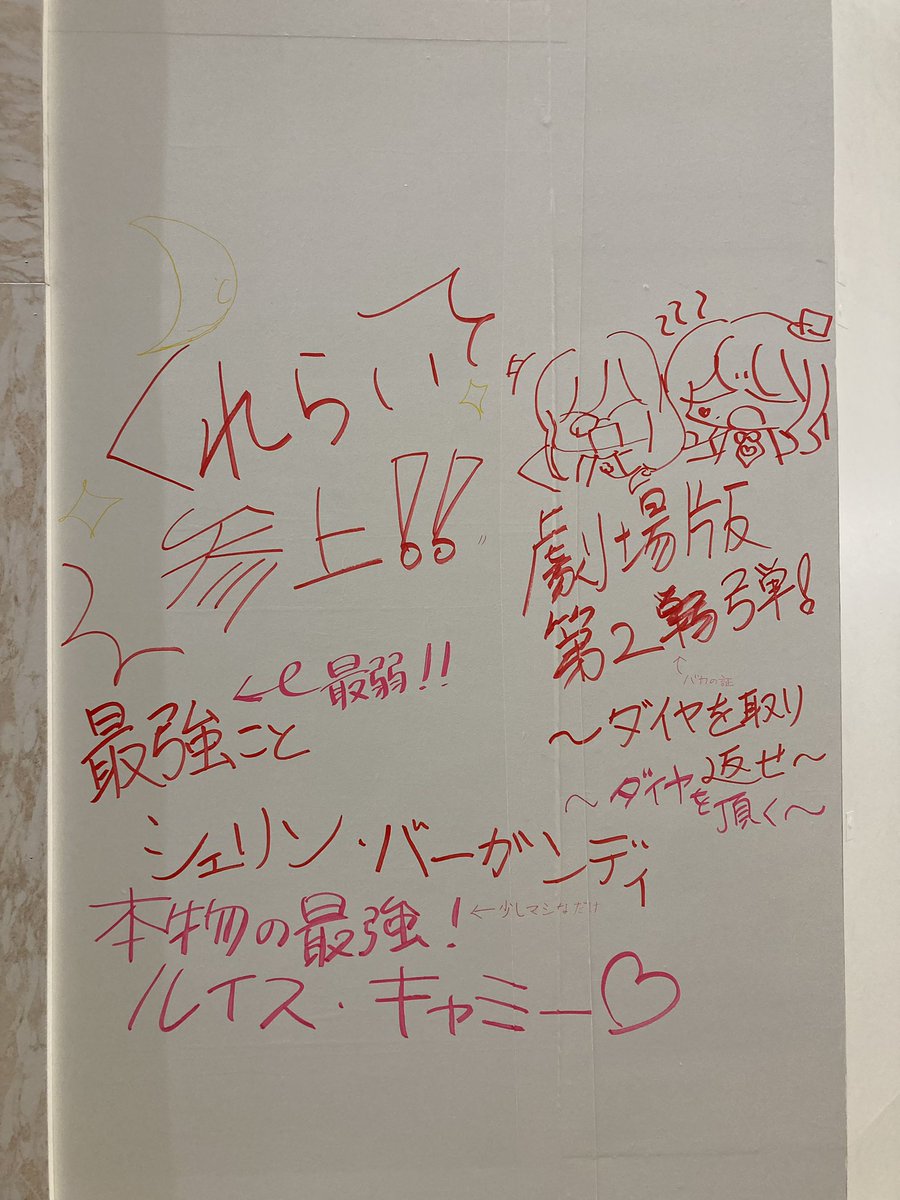 くれらいて
参上!!
最強こと
←最弱!!
シェリン・バーガンディ
本物の最強!
←少しマシなだけ
ルイス・キャミー♡
zzz
劇場版
第2弾!
↑バカの証
〜ダイヤを取り返せ〜
〜ダイヤを頂く〜